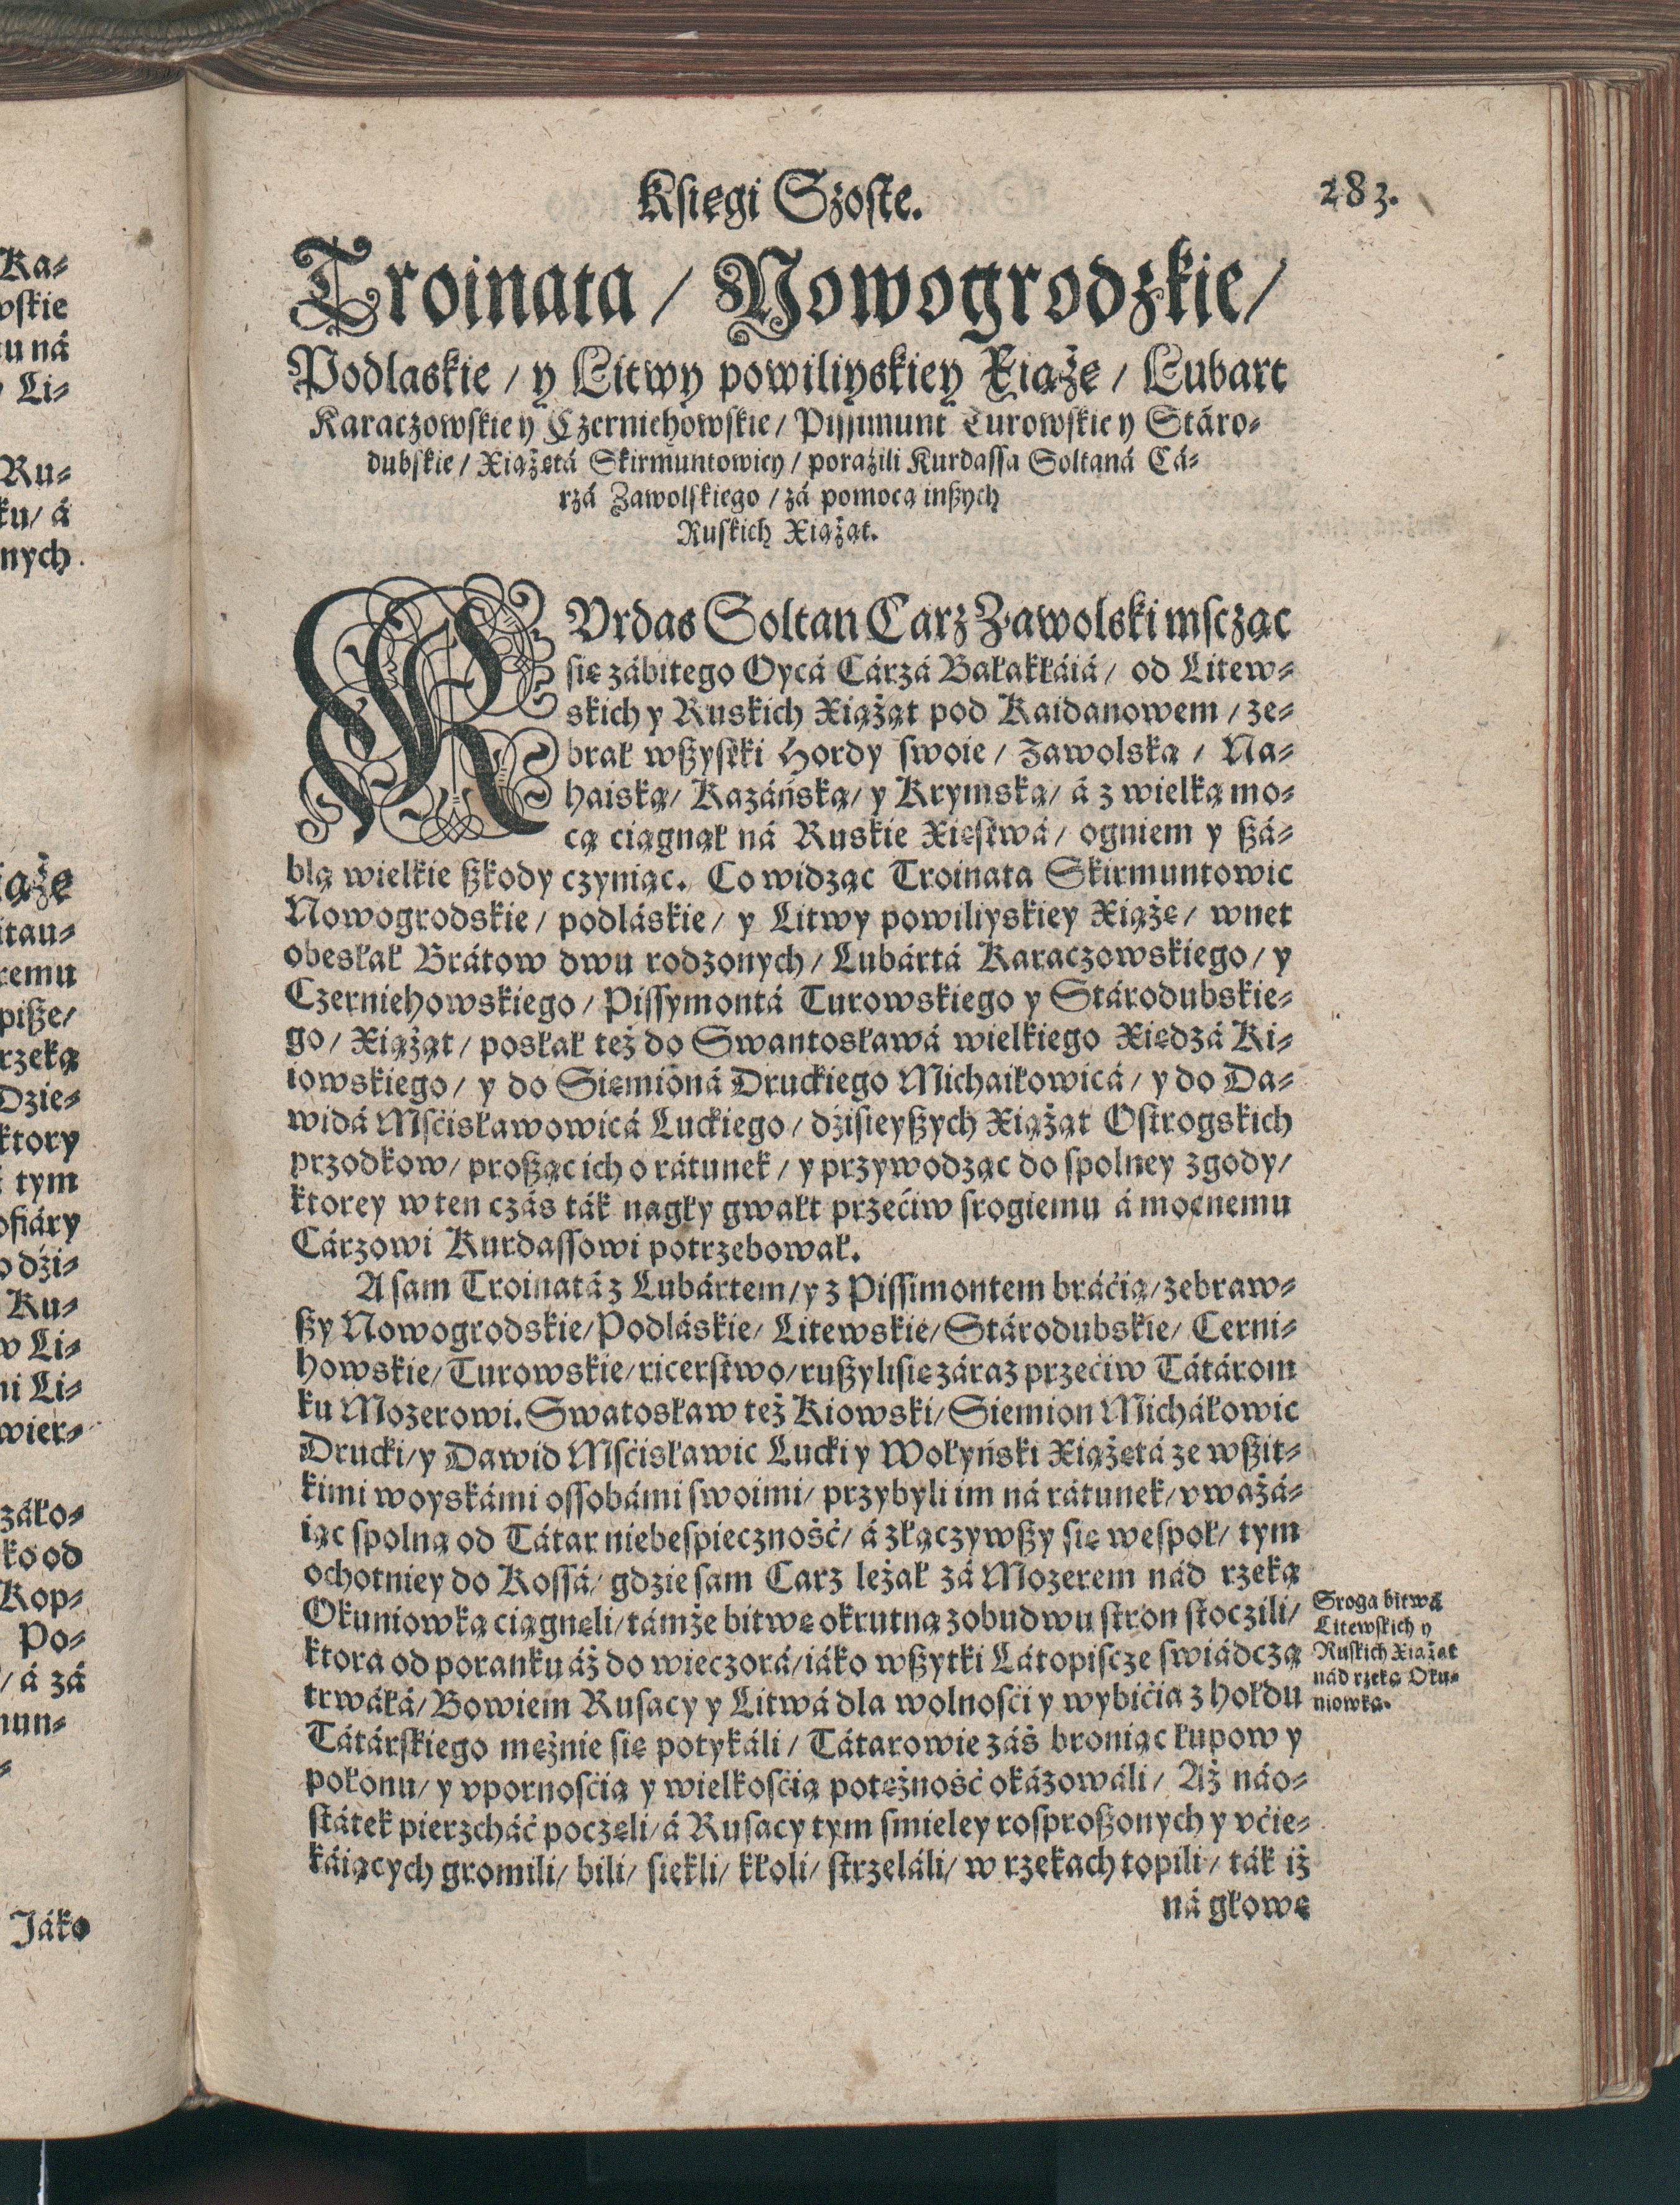 Ka⸗
wskie
tu ná
Li⸗
Ru⸗
ku/ á
nych
iąże
itau⸗
remu
pisze/
rzeką
Dzie⸗
ktory
tym
ofiáry
o dźi⸗
Ku⸗
w Li⸗
ni Li⸗
wier⸗
záko⸗
ko od
Kop⸗
Po⸗
/ á zá
mun⸗
Jáko
Księgi Szoste.
283.
Troinata / Nowogrodzkie /
Podlaskie / y Litwy powiliyskiey Xiąże / Lubart
Karaczowskie y Czerniehowskie / Pissimunt Turowskie y Stáro⸗
dubskie / Xiążętá Skirmuntowicy / poraźili Kurdassa Soltaná Cá⸗
rzá Zawolskiego / zá pomocą inßych
Ruskich Xiążąt.
KVrdas Soltan Carz Zawolski mscząc
się zábitego Oycá Cárzá Bałakłáiá / od Litew⸗
skich y Ruskich Xiążąt pod Kaidanowem / ze⸗
brał wßystki Hordy swoie / Zawolską / Na⸗
haiską / Kazáńską / y Krymską / á z wielką mo⸗
cą ciągnął ná Ruskie Xięstwá / ogniem y ßá⸗
blą wielkie ßkody czyniąc. Co widząc Troinata Skirmuntowic
Nowogrodskie / podláskie / y Litwy powiliyskiey Xiąże / wnet
obesłał Brátow dwu rodzonych / Lubártá Karaczowskiego / y
Czerniehowskiego / Pissymontá Turowskiego y Stárodubskie⸗
go / Xiążąt / posłał też do Swantosławá wielkiego Xiędzá Ki⸗
iowskiego / y do Siemioná Druckiego Michaiłowicá / y do Da⸗
widá Mśćisławowicá Luckiego / dźisieyßych Xiążąt Ostrogskich
przodkow / proßąc ich o rátunek / y przywodząc do spolney zgody /
ktorey w ten czás ták nagły gwałt przećiw srogiemu á mocnemu
Cárzowi Kurdassowi potrzebował.
A sam Troinatá z Lubártem / y z Pissimontem bráćią / zebraw⸗
ßy Nowogrodskie / Podláskie / Litewskie / Stárodubskie / Cerni⸗
howskie / Turowskie / ricerstwo / rußyli się záraz przećiw Tátárom
ku Mozerowi. Swatosław też Kiowski / Siemion Micháłowic
Drucki / y Dawid Mśćisławic Lucki y Wołyński Xiążętá ze wßit⸗
kimi woyskámi ossobámi swoimi / przybyli im ná rátunek / vważá⸗
iąc spolną od Tátar niebespieczność / á złączywßy się wespoł / tym
ochotniey do Kossá / gdzie sam Carz leżał zá Mozerem nád rzeką
Okuniowką ciągneli / támże bitwę okrutną z obudwu stron stoczili /
ktora od poranku áż do wieczorá / iáko wßytki Látopiscze swiádczą
trwáłá / Bowiem Rusacy y Litwá dla wolnośći y wybićia z hołdu
Tátárskiego mężnie się potykáli / Tátarowie záś broniąc łupow y
połonu / y vpornośćią y wielkośćią potężność okázowáli / Aż náo⸗
státek pierzcháć poczęli / á Rusacy tym smieley rosproßonych y vćie⸗
káiących gromili / bili / siekli / kłoli / strzeláli / w rzekach topili / ták iż
ná głowę
Sroga bitwá
Litewskich y
Ruskich Xiążąt
nád rzeką Oku⸗
niowką.